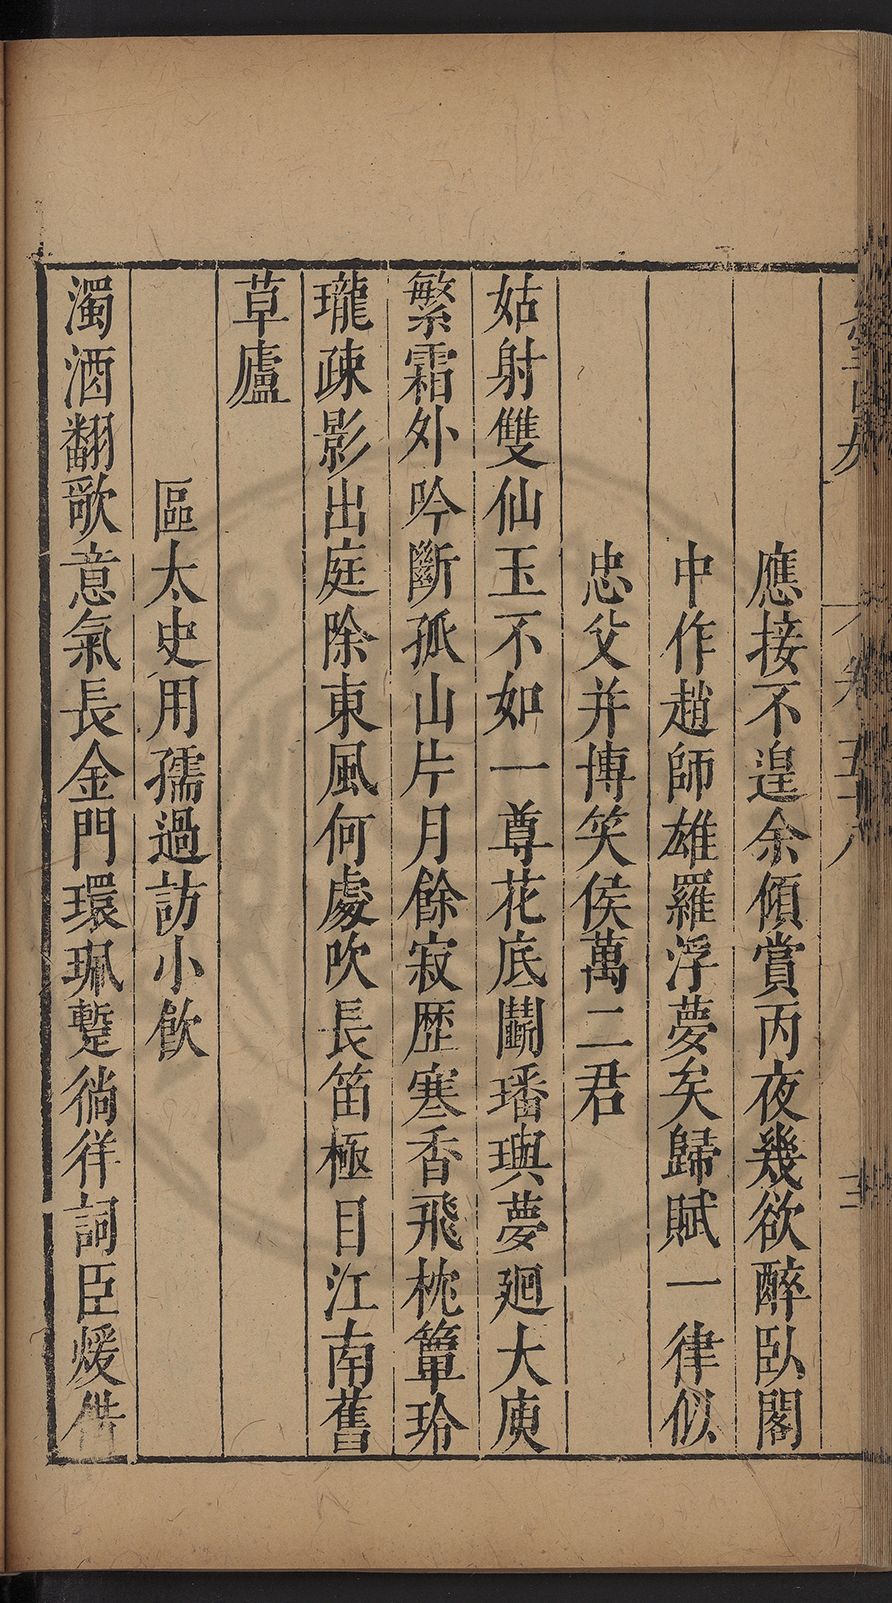 應接不遑余傾賞丙夜幾欲醉臥閣
中作趙師雄羅浮夢矣歸賦一律似
忠父并博笑侯萬二君
姑射雙仙玉不如一尊花底鬭璠璵夢廻大庾
繁霜外吟斷孤山片月餘寂歷寒香飛枕簟玲
瓏疎影出庭除東風何處吹長笛極目江南舊
草廬
區太史用孺過訪小飲
濁酒翻歌意氣長金門環珮蹔徜徉詞臣煖借